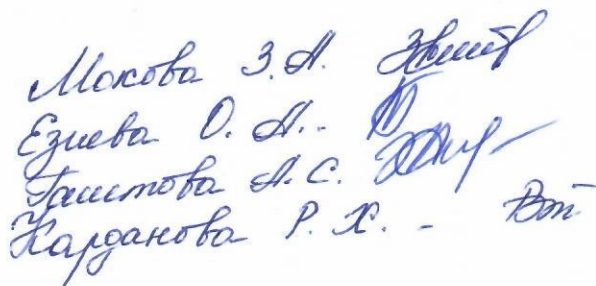 Мокова З.А.
Езиева О.А.-
Гаштова А.С.
Карданова Р.Х. -